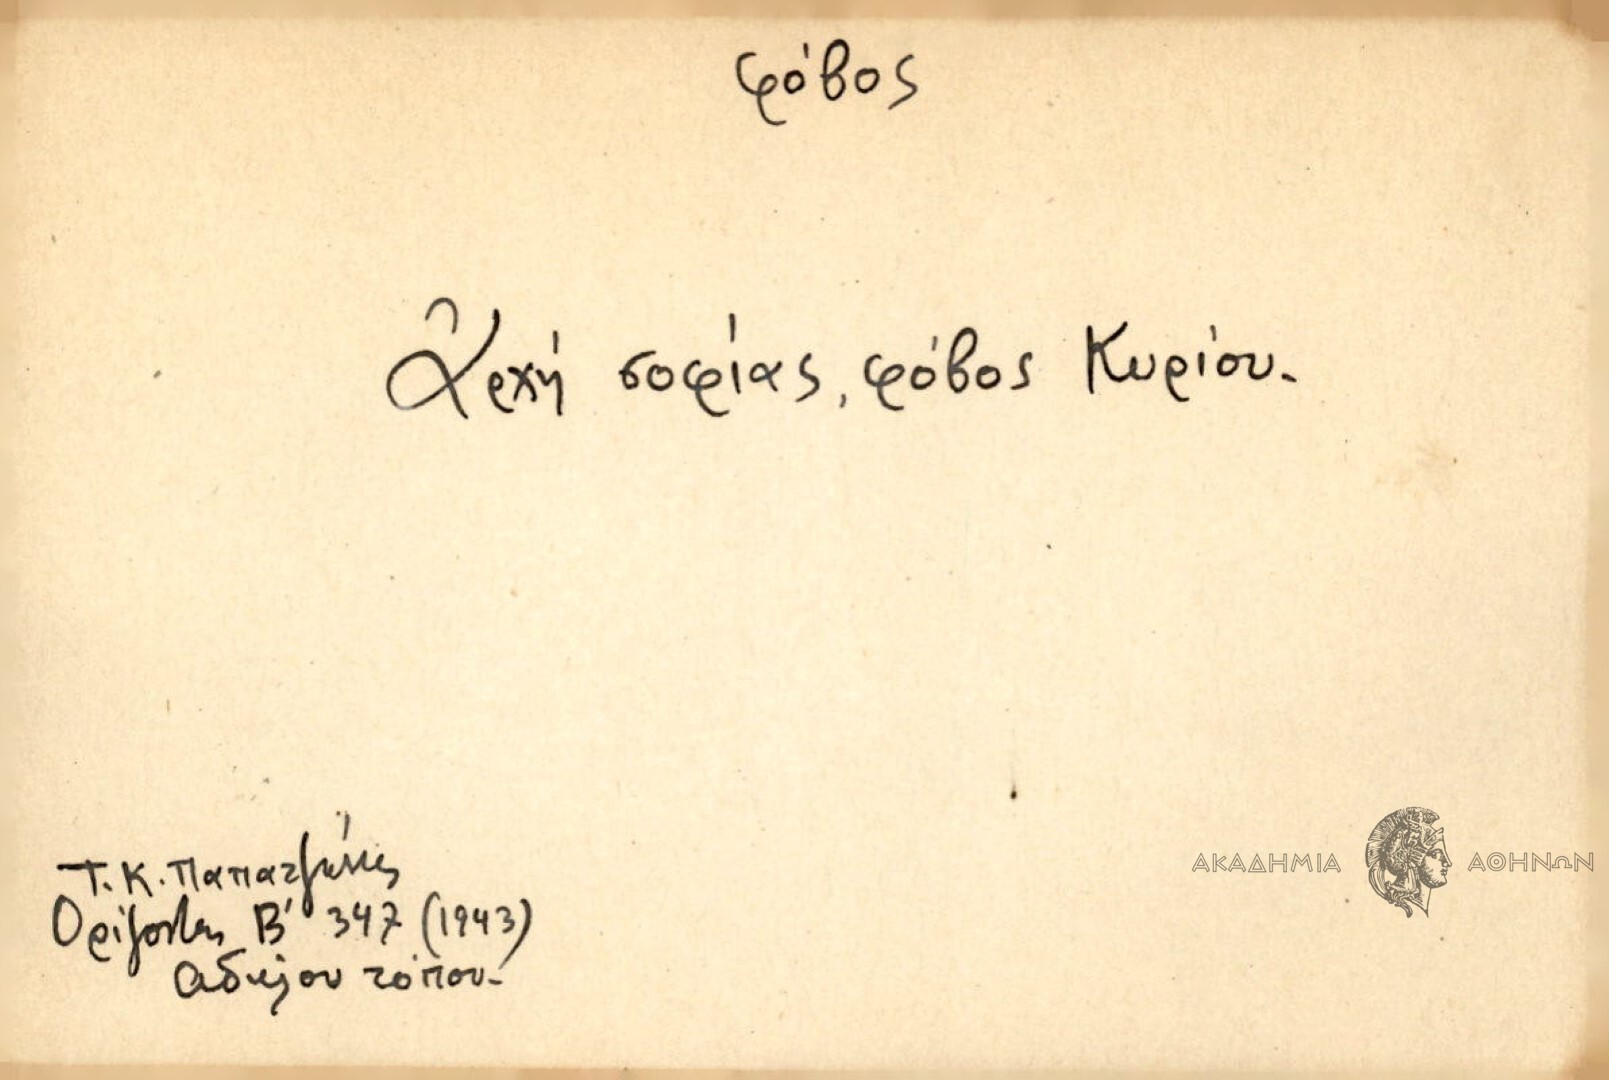 φόβος
Ἀρχή σοφίας, φόβος Κυρίου.
Τ. Κ. Παπατζώνης
Ορίζοντες Β' 347 (1943)
αδήλου τόπου.
ΑΚΑΔΗΜΙΑ ΑΘΗΝΩΝ